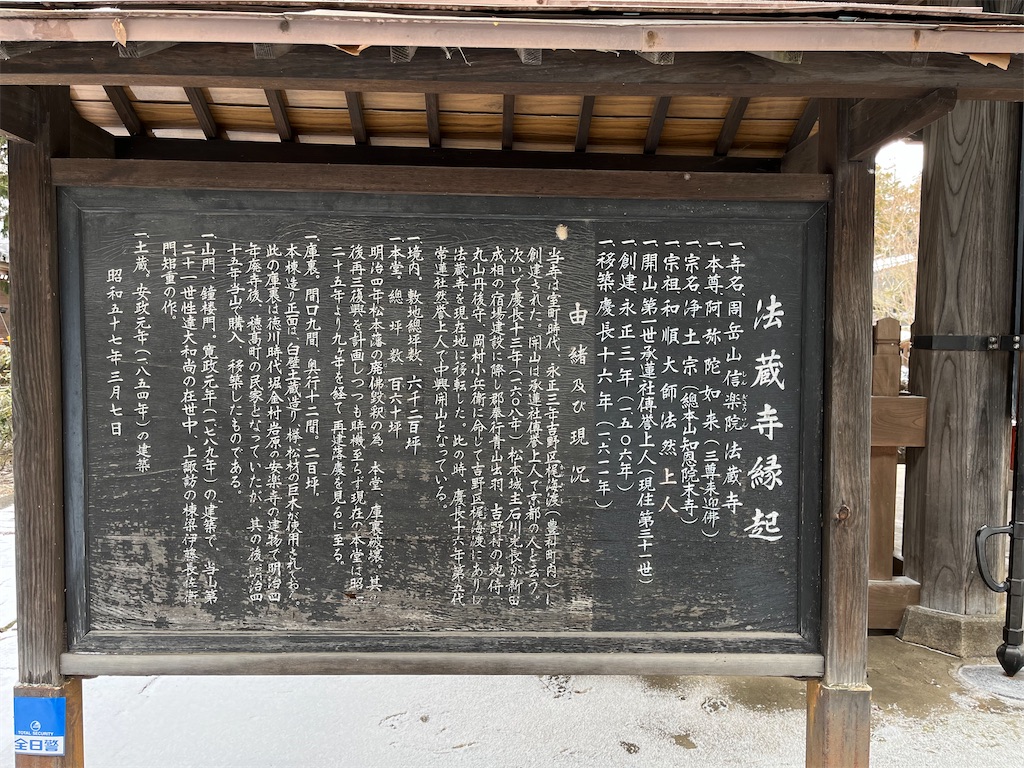 法蔵寺縁起
一、寺名、周岳山信楽院法蔵寺
しん ぎょう いん
一、本尊 阿弥陀如来(三尊来迎佛)
一、宗名 浄土宗(総本山知恩院末寺)
一、宗祖 和順大師法然上人
一、開山 第一世承蓮社傳誉上人(現住第三十一世)
一、創建 永正三年(一五〇六年)
一、移築 慶長十六年(一六一一年)
由緒及び現況
当寺は室町時代、永正三年吉野区梶海渡(豊科町内)に
創建された。開山は承蓮社傳誉上人で京都の人と云う。
次いで慶長十三年(一六〇八年)松本城主石川光長が新田
成相の宿場建設に際し郡奉行青山出羽、吉野村の地侍
丸山丹後守、岡村小兵衛に命じて吉野区梶海渡にありし
法蔵寺を現在地に移転した。此の時、慶長十六年第五代
常蓮社然誉上人で中興開山となっている。
一、境内、敷地総坪数 六千二百坪
一、本堂、総坪数 百六十坪
明治四年松本藩の廃佛毀釈の為、本堂、庫裏破壊、其の
後再三復興を計画しつつも時機至らず現在の本堂は昭和
二十五年より九ヶ年を経て再建落慶を見るに至る。
一、庫裏、間口九間 奥行十二間。二百坪。
本棟造り正面は白壁土蔵造り欅松材の巨木が使用されており
此の庫裏は徳川時代堀金村岩原の安楽寺の建物で明治四
年廃寺後、穂高町の民家となっていたが、其の後明治四
十五年当山で購入、移築したものである。
一、山門、鐘楼門。寛政元年(一七八九年)の建築で、当山第
二十一世性達大和尚の在世中、上諏訪の棟梁伊藤長左衛
門矩重の作。
一、土蔵、安政元年(一八五四年)の建築
昭和五十七年三月七日
TOTAL SECURITY
全日警